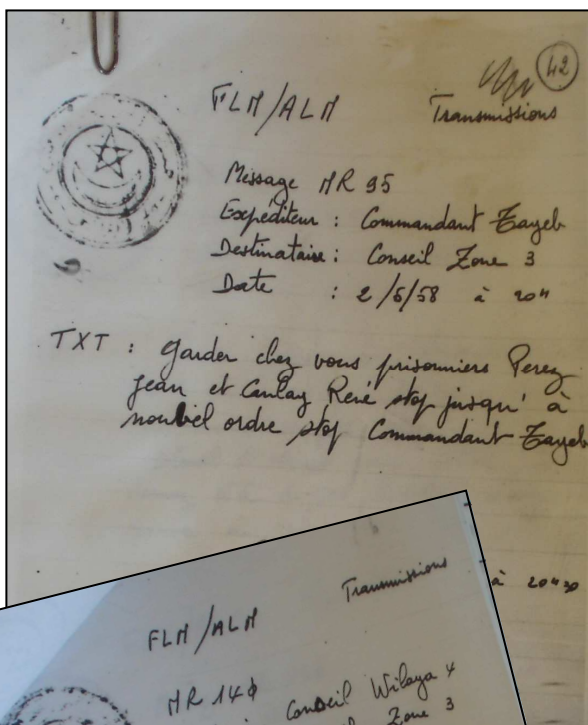 42
FLN/ALN Transmissions
Message NR 95
Expéditeur : Commandant Tayeb
Destinataire : Conseil Zone 3
Date : 2/5/58 à 20H
TXT : garder chez vous prisonniers Perez
Jean et René stop jusqu'à
nouvel ordre stop Commandant Tayeb
à 20H30
FLN/ALN Transmissions
NR 140
Conseil Wilaya 4
Zone 3